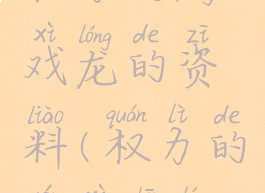 xì lóng de zī
戏龙的资
liào quán lì de
料(权力的